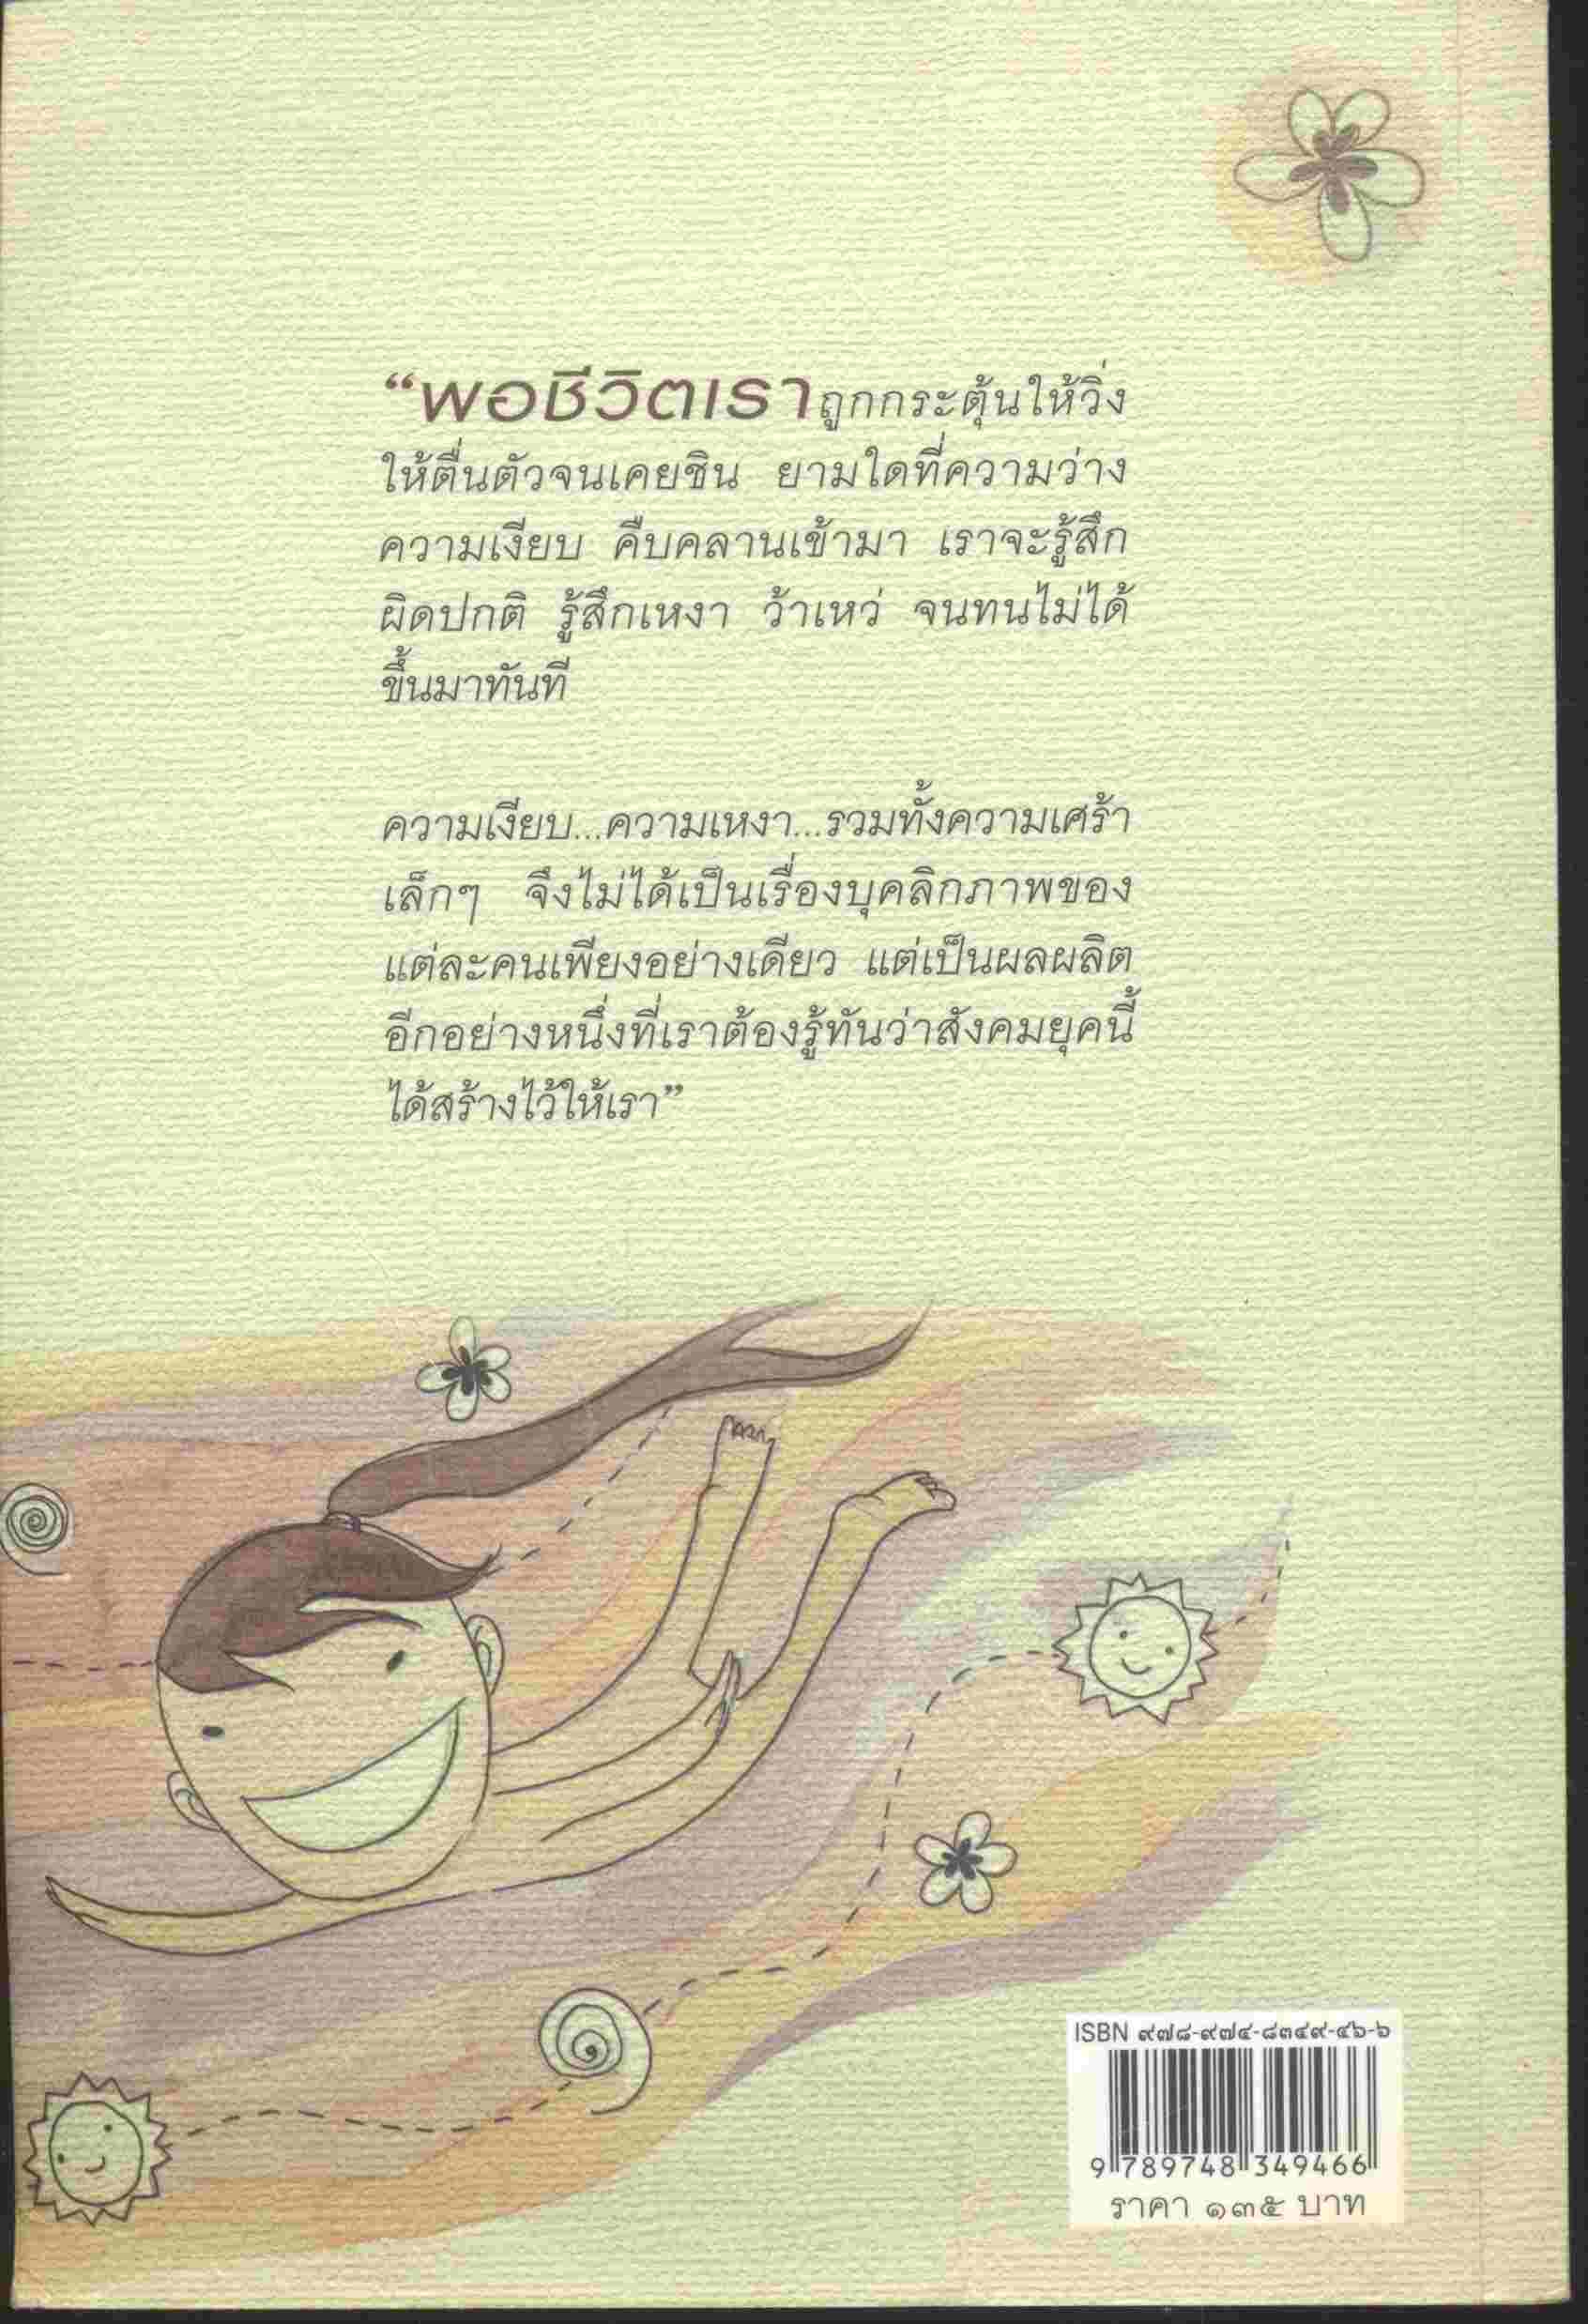 “พอชีวิตเราถูกกระตุ้นให้วิ่ง
ให้ตื่นตัวจนเคยชิน ยามใดที่ความว่าง
ความเงียบ คืบคลานเข้ามา เราจะรู้สึก
ผิดปกติ รู้สึกเหงา ว้าเหว่ จนทนไม่ได้
ขึ้นมาทันที
ความเงียบ...ความเหงา...รวมทั้งความเศร้า
เล็กๆ จึงไม่ได้เป็นเรื่องบุคลิกภาพของ
แต่ละคนเพียงอย่างเดียว แต่เป็นผลผลิต
อีกอย่างหนึ่งที่เราต้องรู้ทันว่าสังคมยุคนี้
ได้สร้างไว้ให้เรา”
ISBN ๙๗๘-๙๗๔-๘๓๔๙-๔๖-๖
9 789748 349466
ราคา ๑๓๕ บาท